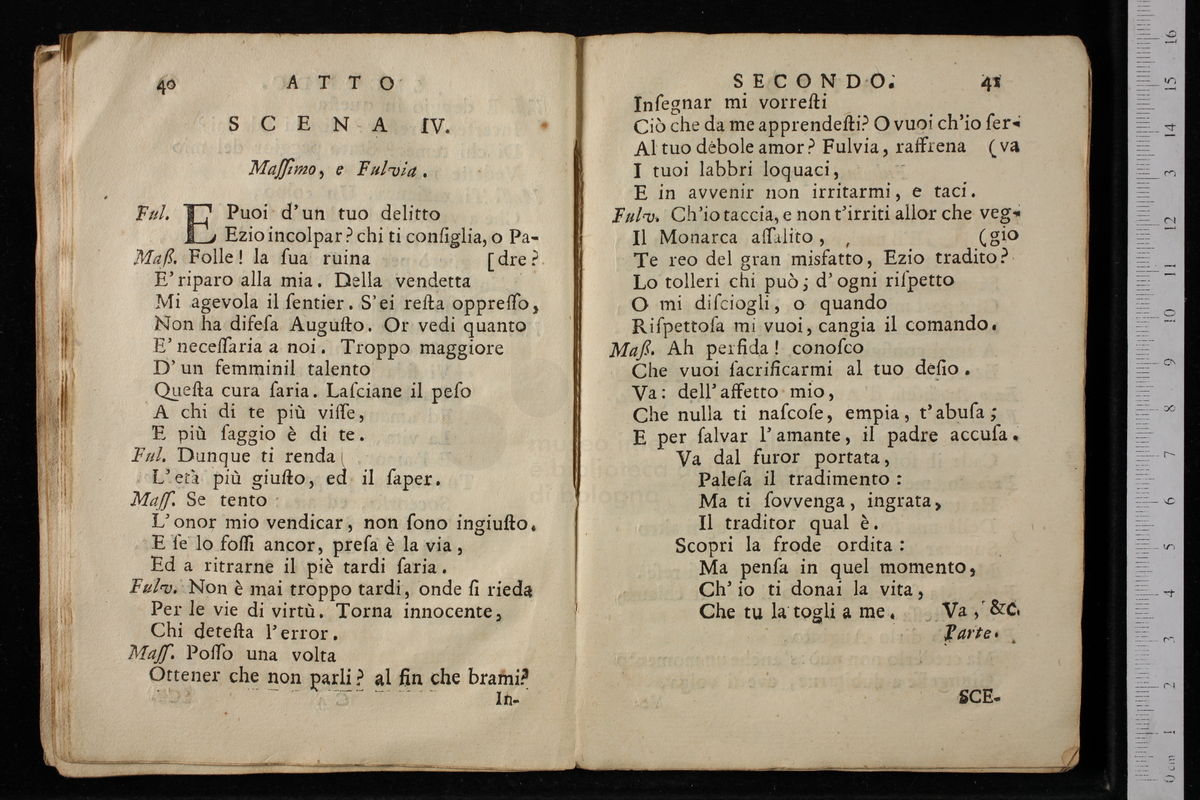 40 ATTO
SCENA IV.
Maſſimo, e Fulvia.
Ful. E Puoi d'un tuo delitto
Ezio incolpar? chi ti conſiglia, o Pa-
Maß. Folle! la ſua ruina [dre?
E' riparo alla mia. Della vendetta
Mi agevola il ſentier. S'ei reſta oppreſſo,
Non ha difeſa Auguſto. Or vedi quanto
E' neceſſaria a noi. Troppo maggiore
D'un femminil talento
Queſta cura ſaria. Laſciane il peſo
A chi di te più viſſe,
E più ſaggio è di te.
Ful. Dunque ti renda
L'età più giuſto, ed il ſaper.
Maſſ. Se tento
L'onor mio vendicar, non ſono ingiuſto.
E ſe lo foſſi ancor, preſa è la via,
Ed a ritrarne il piè tardi ſaria.
Fulv. Non è mai troppo tardi, onde ſi rieda
Per le vie di virtù. Torna innocente,
Chi deteſta l'error.
Maſſ. Poſſo una volta
Ottener che non parli? al fin che brami?
In-
SECONDO. 41
Inſegnar mi vorreſti
Ciò che da me apprendeſti? O vuoi ch'io ſer-
Al tuo debole amor? Fulvia, raffrena (va
I tuoi labbri loquaci,
E in avvenir non irritarmi, e taci.
Fulv. Ch'io taccia, e non t'irriti allor che veg-
Il Monarca aſſalito, (gio
Te reo del gran misfatto, Ezio tradito?
Lo tolleri chi può; d'ogni riſpetto
O mi diſciogli, o quando
Riſpettoſa mi vuoi, cangia il comando.
Maß. Ah perfida! conoſco
Che vuoi ſacrificarmi al tuo deſio.
Va: dell'affetto mio,
Che nulla ti naſcoſe, empia, t'abuſa;
E per ſalvar l'amante, il padre accuſa.
Va dal furor portata,
Paleſa il tradimento:
Ma ti ſovvenga, ingrata,
Il traditor qual è.
Scopri la frode ordita:
Ma penſa in quel momento,
Ch'io ti donai la vita,
Che tu la togli a me. Va, &c.
Parte.
SCE-
museo in
biblioteca
di bologna
0 cm 1 2 3 4 5 6 7 8 9 10 11 12 13 14 15 16